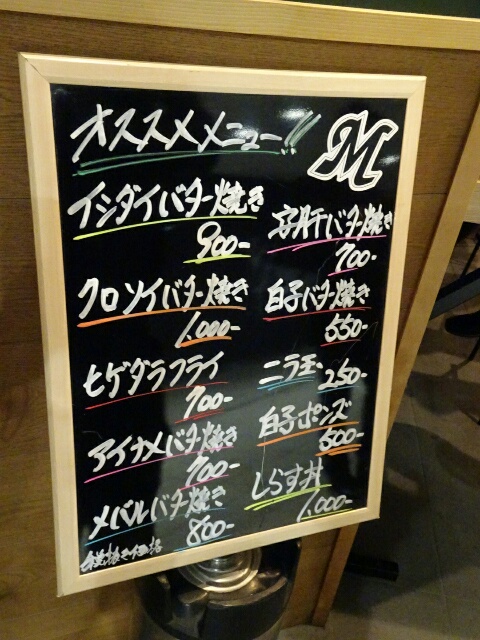 オススメメニュー!!
M
イシダイバター焼き
900-
クロソイバター焼き
1,000-
ヒゲダラフライ
700-
アイナメバター焼き
700-
メバルバター焼き
800-
税抜き価格
安肝バター焼き
700-
白子バター焼き
550-
ニラ玉 250-
白子ポンズ
500-
しらす丼
1,000-